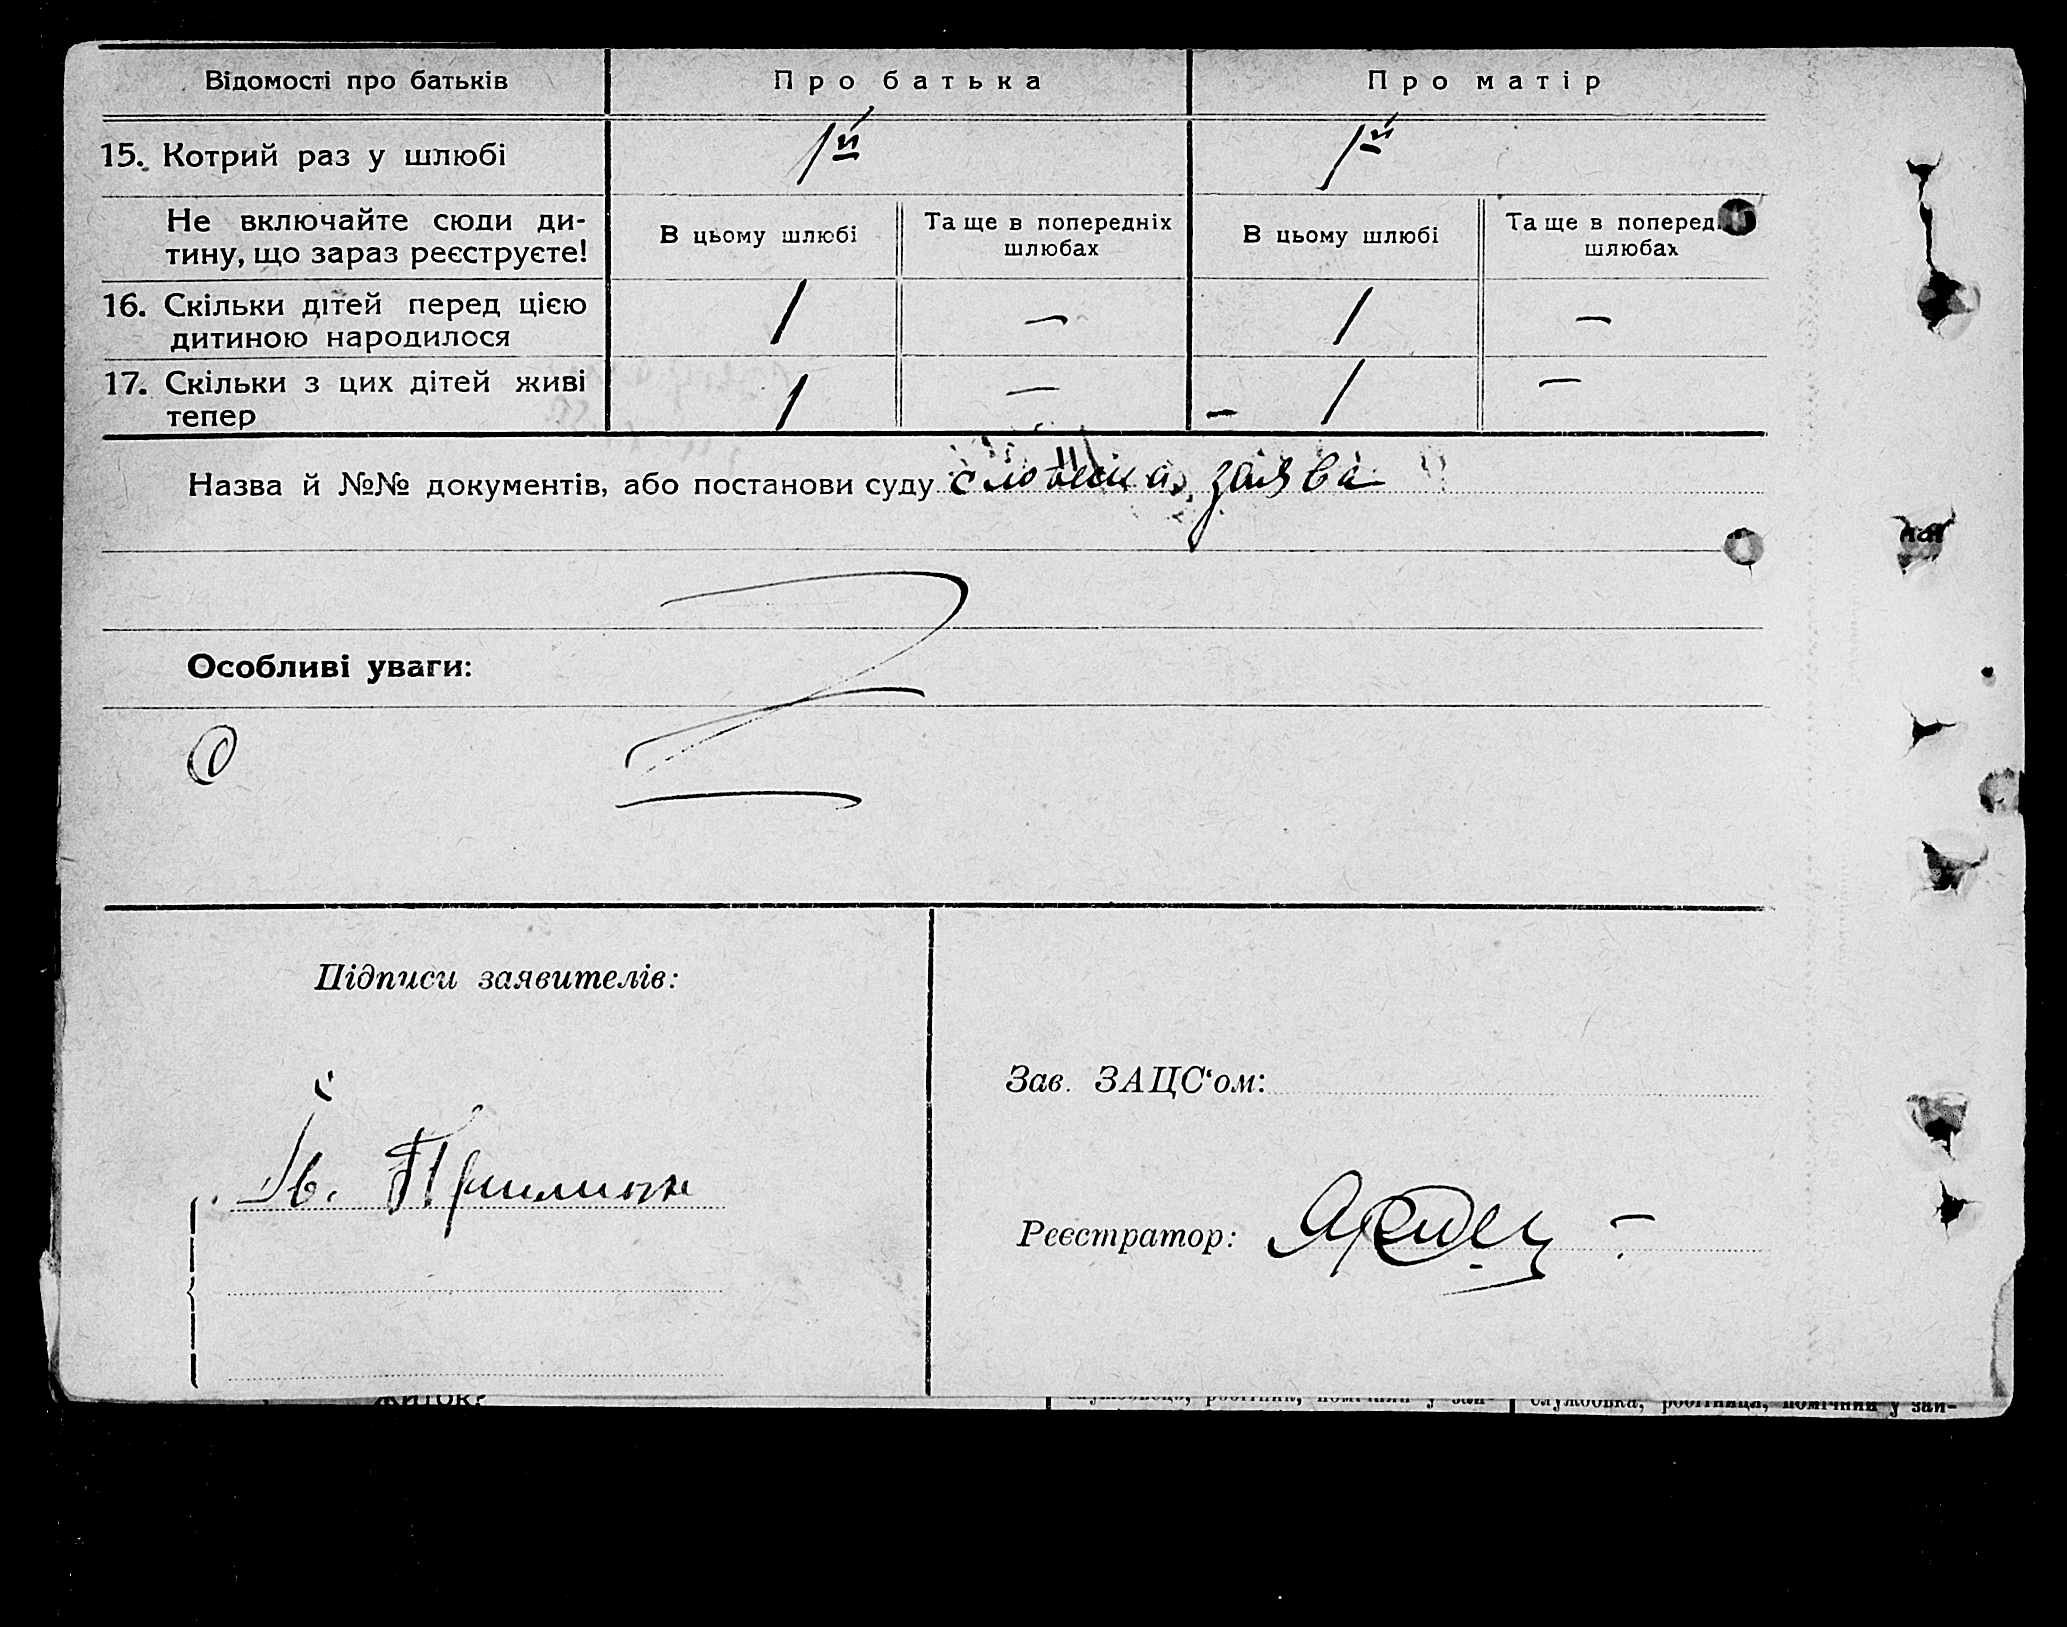 Відомості про батьків Про батька Про матір
15. Котрий раз у шлюбі 1й 1й
Не включайте сюди ди-
тину, що зараз реєструєте!
В цьому шлюбі
Та ще в попередніх
шлюбах
В цьому шлюбі
Та ще в поперед
шлюбах
16. Скільки дітей перед цією
дитиною народилося
1 — 1 —
17. Скільки з цих дітей живі
тепер
1 — – 1 —
Назва й №№ документів, або постанови суду словесна заява
Особливі уваги:
Підписи заявителів:
Зав. ЗАЦС‘ом:
Ів.
Реєстратор:
житок?
службовець, робітник, помічний у зай-
службовка, робітниця, помічний у зай-